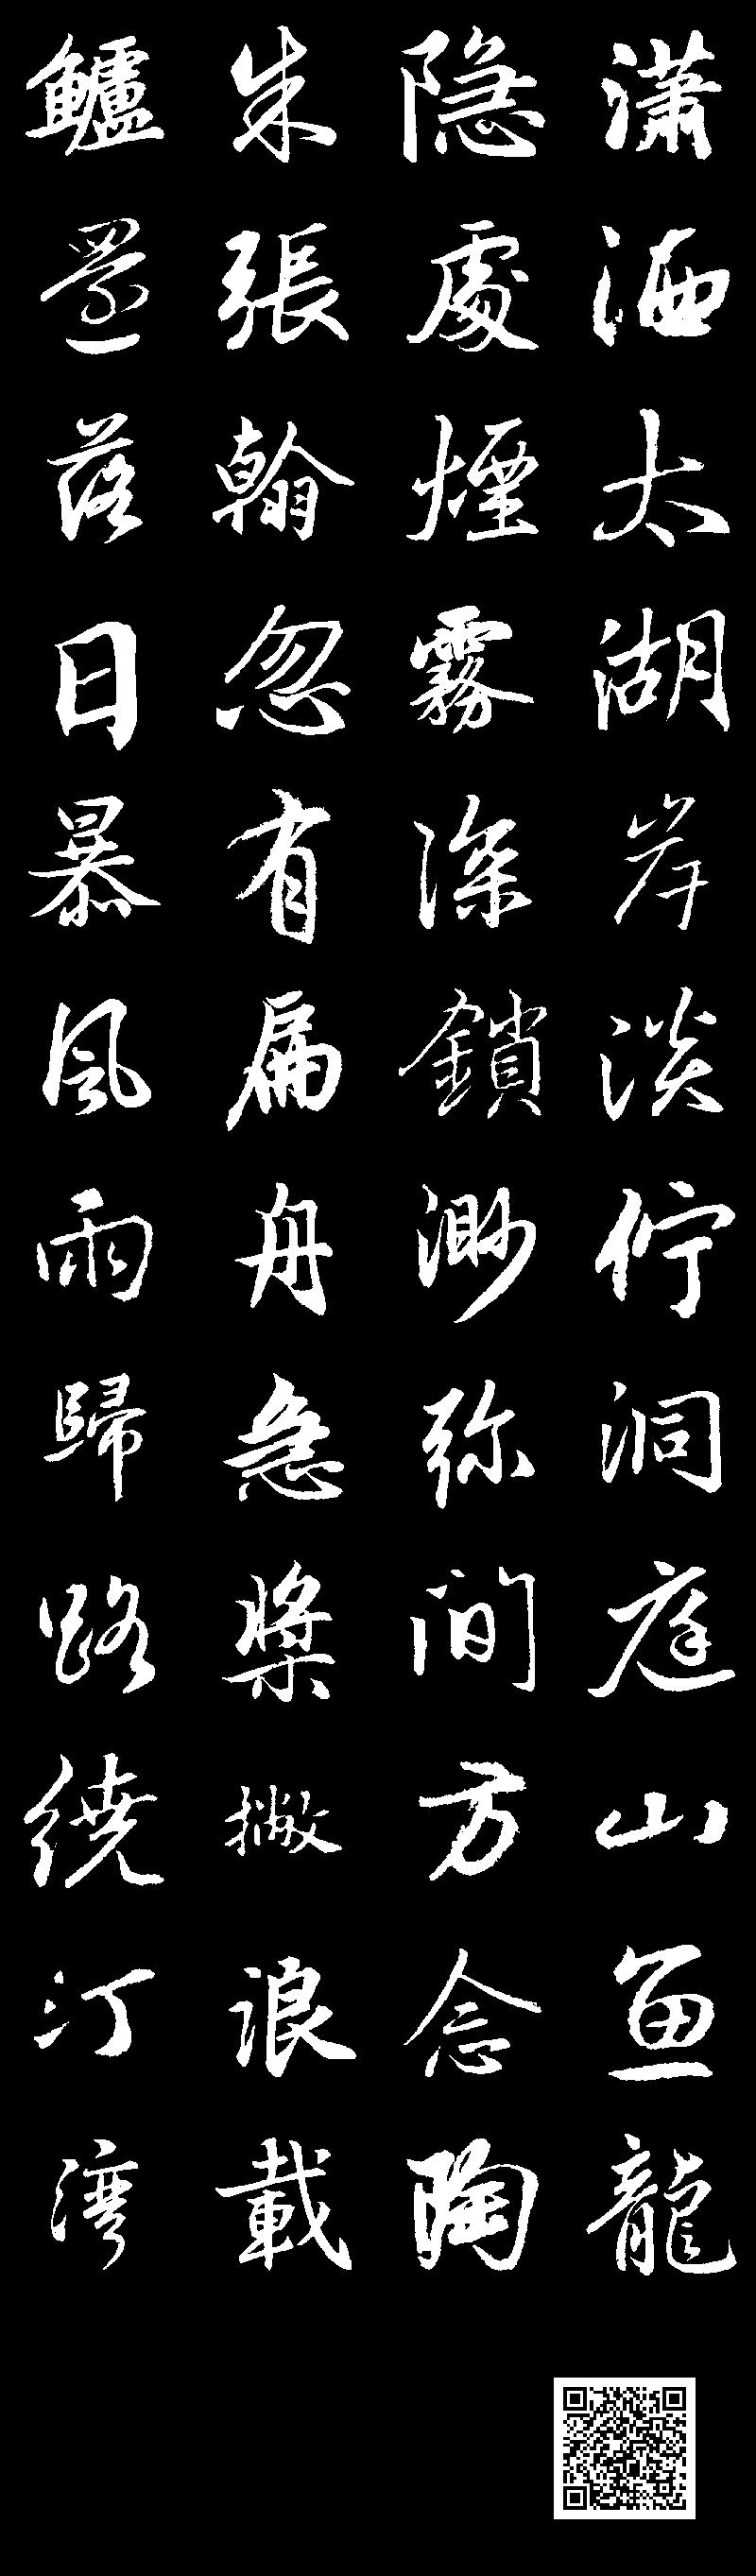 瀟洒太湖岸淡佇洞庭山鱼龍
隐處煙霧深鎖渺弥間方念陶
朱張翰忽有扁舟急槳撇浪載
鱸還落日暴風雨歸路繞汀湾